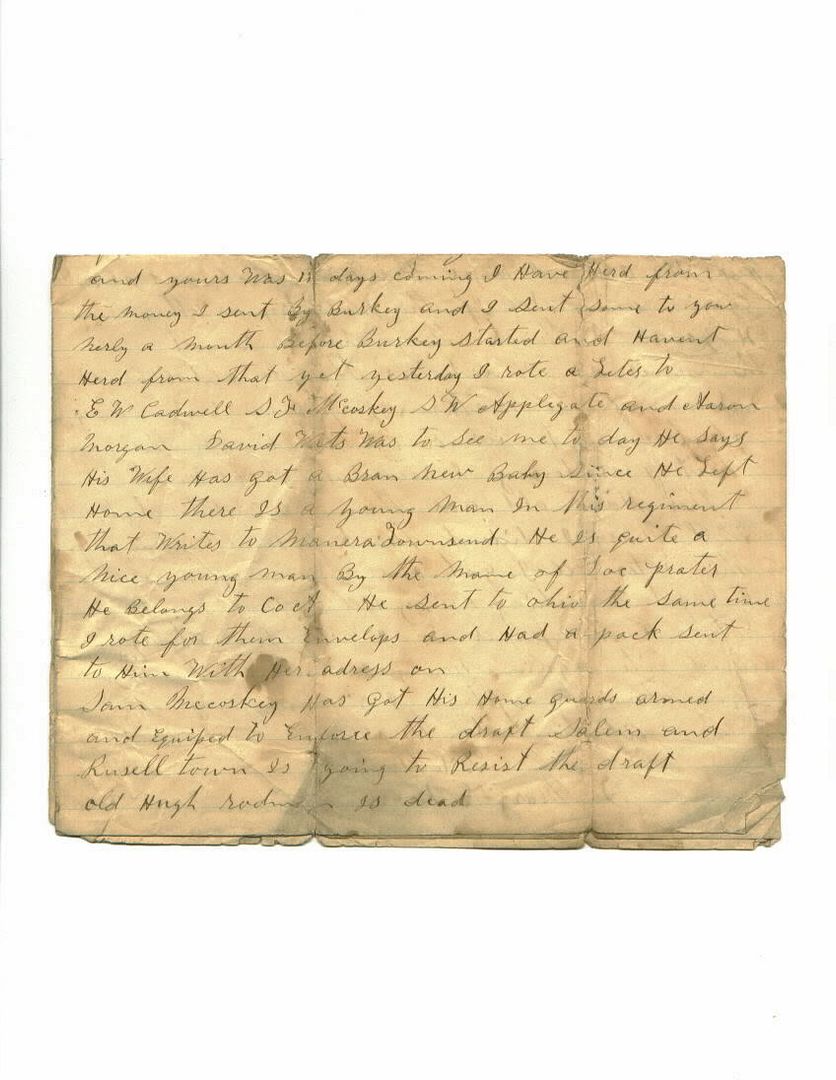 and yours Was days coming I Have Herd from
the money I sent By Burkey and I sent some to you
nerly a month Before Burkey started and Havent
Herd from that yet yesterday I rote a Leter to
E W Cadwell S F Mccoskey S W Applegate and Aaron
Morgan David Wats Was to See me to day He says
His Wife Has got a Bran new Baby since He Left
Home there Is a young man In this regiment
that Writes to Manera Townsend He Is quite a
nice young man By the name of prater
He Belongs to Co A He sent to ohio the same time
I rote for them Envelops and Had a pack sent
to Him With Her adress on
Sam Mccoskey Has got His Home guards armed
and Equiped to Enforce the draft Salem and
Rusell town Is going to Resist the draft
old Hugh Is dead